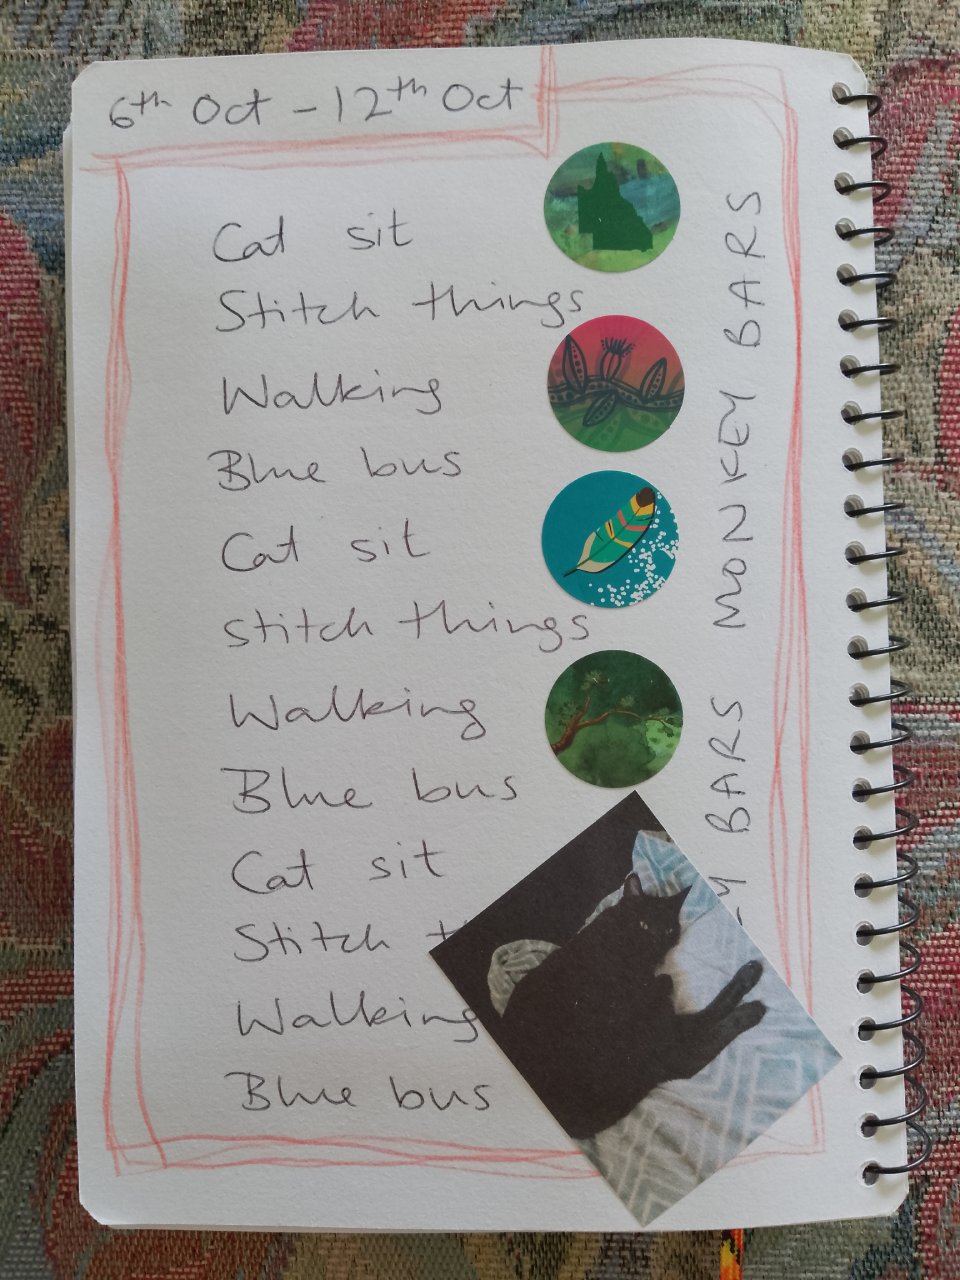 6th Oct - 12th Oct
Cat sit
Stitch things
Walking
Blue bus
Cat sit
stitch things
Walking
Blue bus
Cat sit
Stitch
Walking
Blue bus
MONKEY BARS
BARS